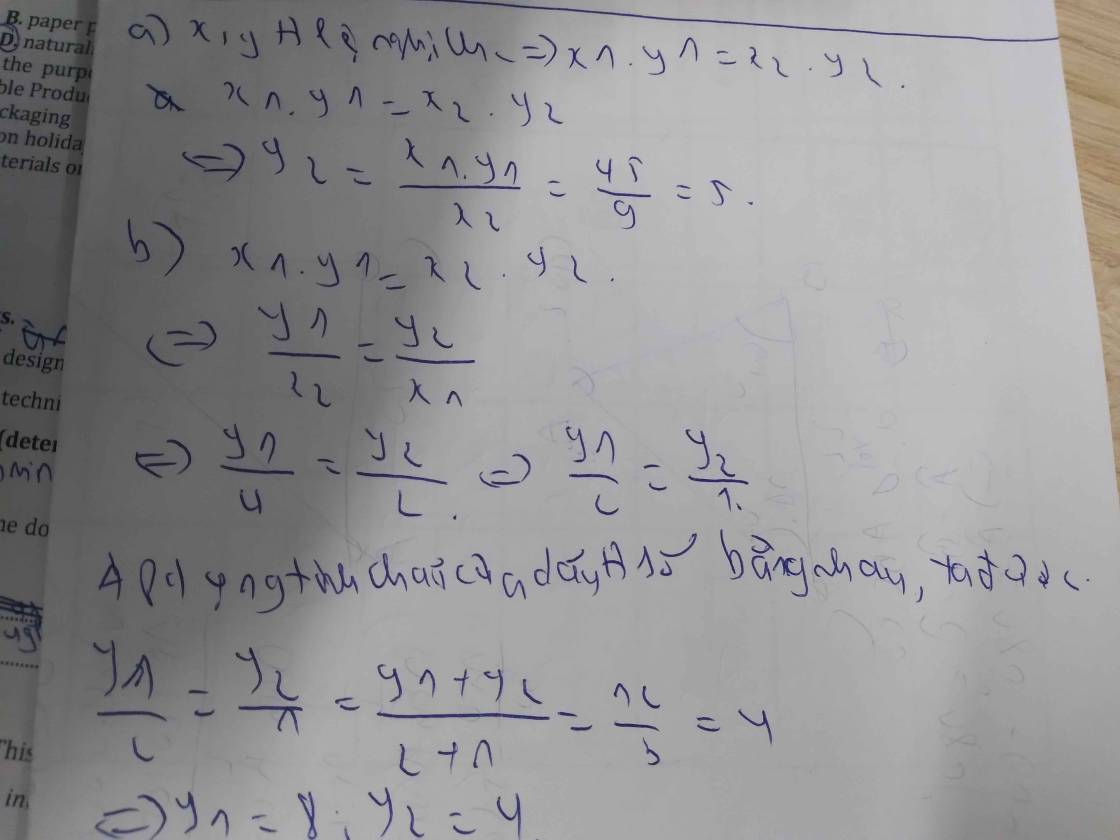 B. paper p
D. natural
the purp
ble Produ
ckaging
on holida
terials o
s.
design
techni
(deter
ne do
This
in
a) x, y tỉ lệ nghịch => x1.y1 = x2.y2.
x1.y1 = x2.y2
<=> y2 = x1.y1/x2 = 45/9 = 5.
b) x1.y1 = x2.y2.
<=> y1/x2 = y2/x1
<=> y1/4 = y2/2. <=> y1/2 = y2/1.
Áp dụng tính chất của dãy tỉ số bằng nhau, ta được.
y1/2 = y2/1 = y1+y2/2+1 = 12/3 = 4
<=> y1 = 8; y2 = 4